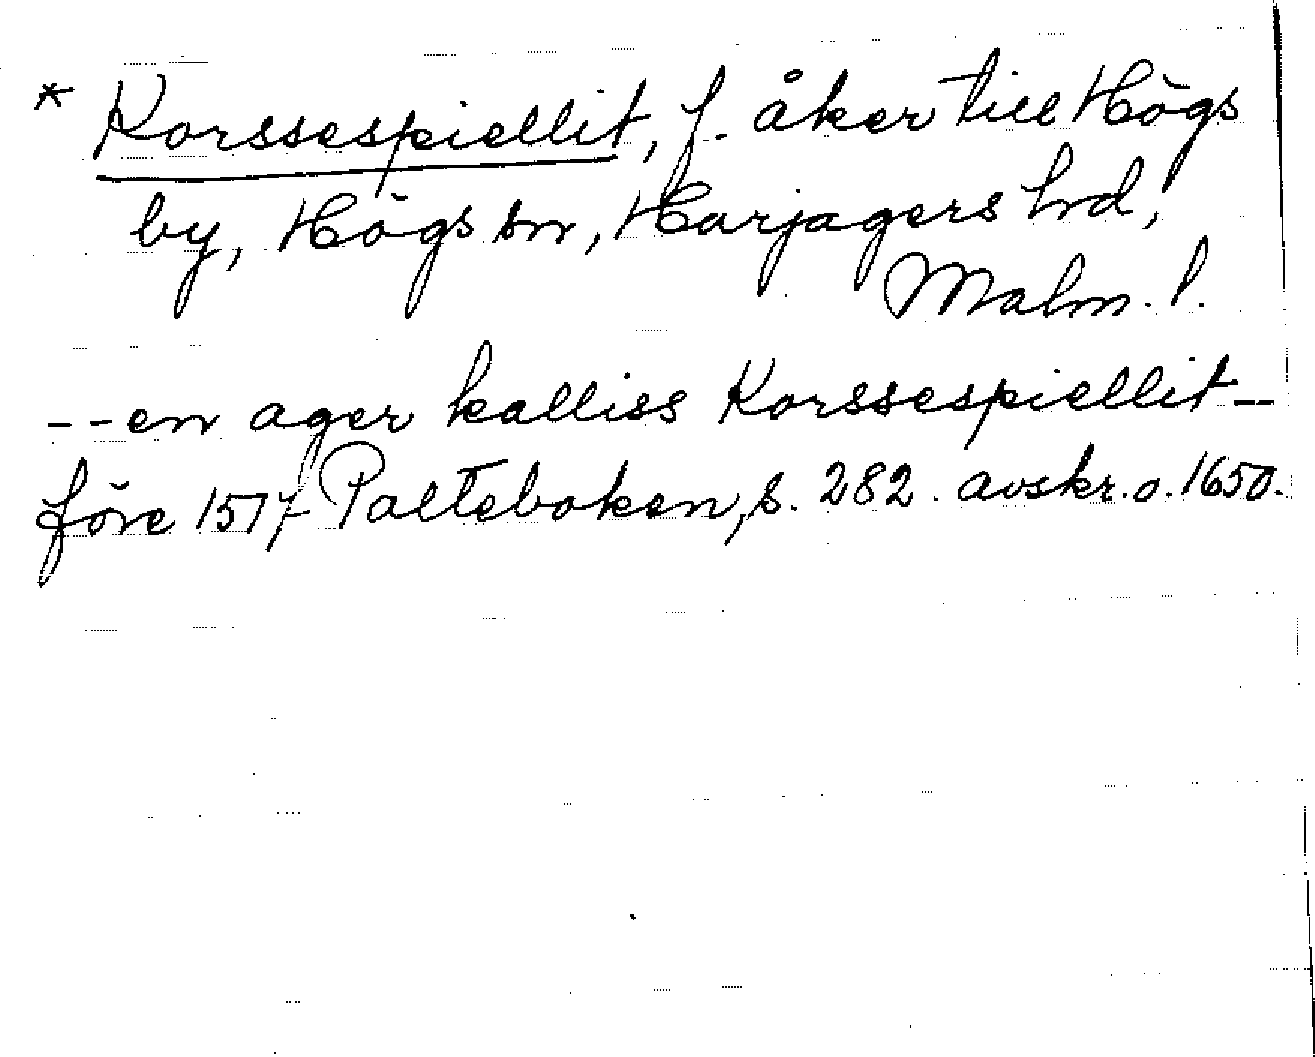 * Korssespiellit, f. åker till Högs
by, Högs sn, Harjagers hd,
Malm. l.
-- en ager kalliss Korssespiellit --
före 1517 Palteboken, s. 282. avskr. o. 1650.